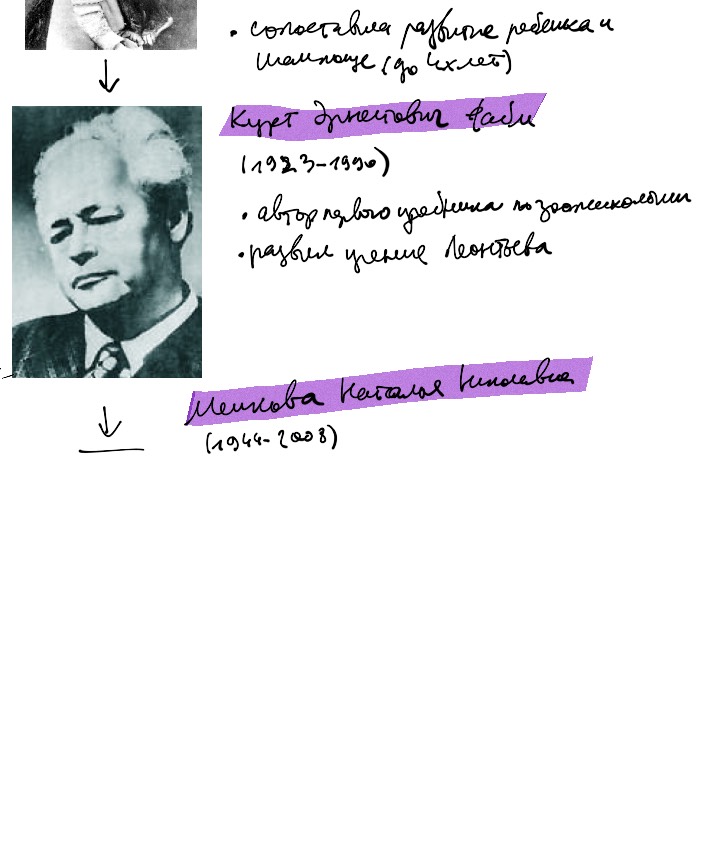 • сопоставила развитие ребенка и
шимпанзе (до 4х лет)
Курт Эрнестович Фабри
(1923-1990)
• автор первого учебника по зоопсихологии
• развил учение Леонтьева
Мешкова Наталья Николаевна
(1944-2008)